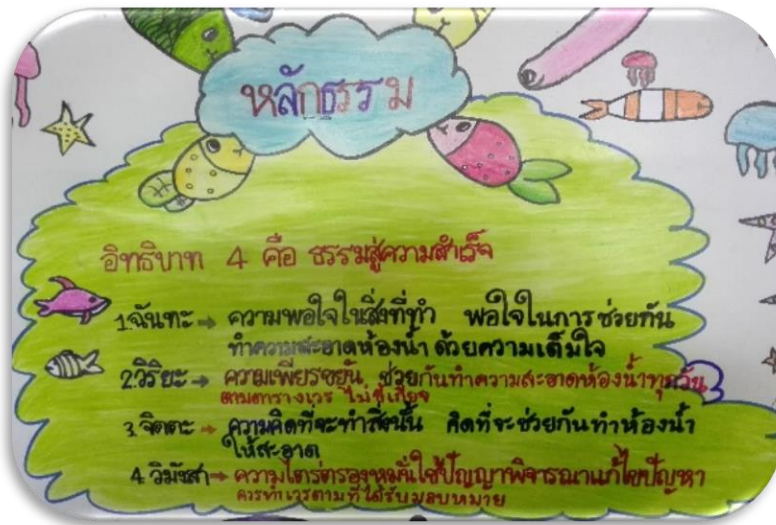 หลักธรรม
อิทธิบาท 4 คือ ธรรมสู่ความสำเร็จ
1.ฉันทะ → ความพอใจในสิ่งที่ทำ พอใจในการช่วยกัน
ทำความสะอาดห้องน้ำ ด้วยความเต็มใจ
2.วิริยะ → ความเพียรขยัน ช่วยกันทำความสะอาดห้องน้ำทุกวัน
ตามตารางเวร ไม่ขี้เกียจ
3.จิตตะ → ความคิดที่จะทำสิ่งนั้น คิดที่จะช่วยกันทำห้องน้ำ
ให้สะอาด
4.วิมังสา → ความไตร่ตรองหมั่นใช้ปัญญาพิจารณาแก้ไขปัญหา
ควรทำเวรตามที่ได้รับมอบหมาย